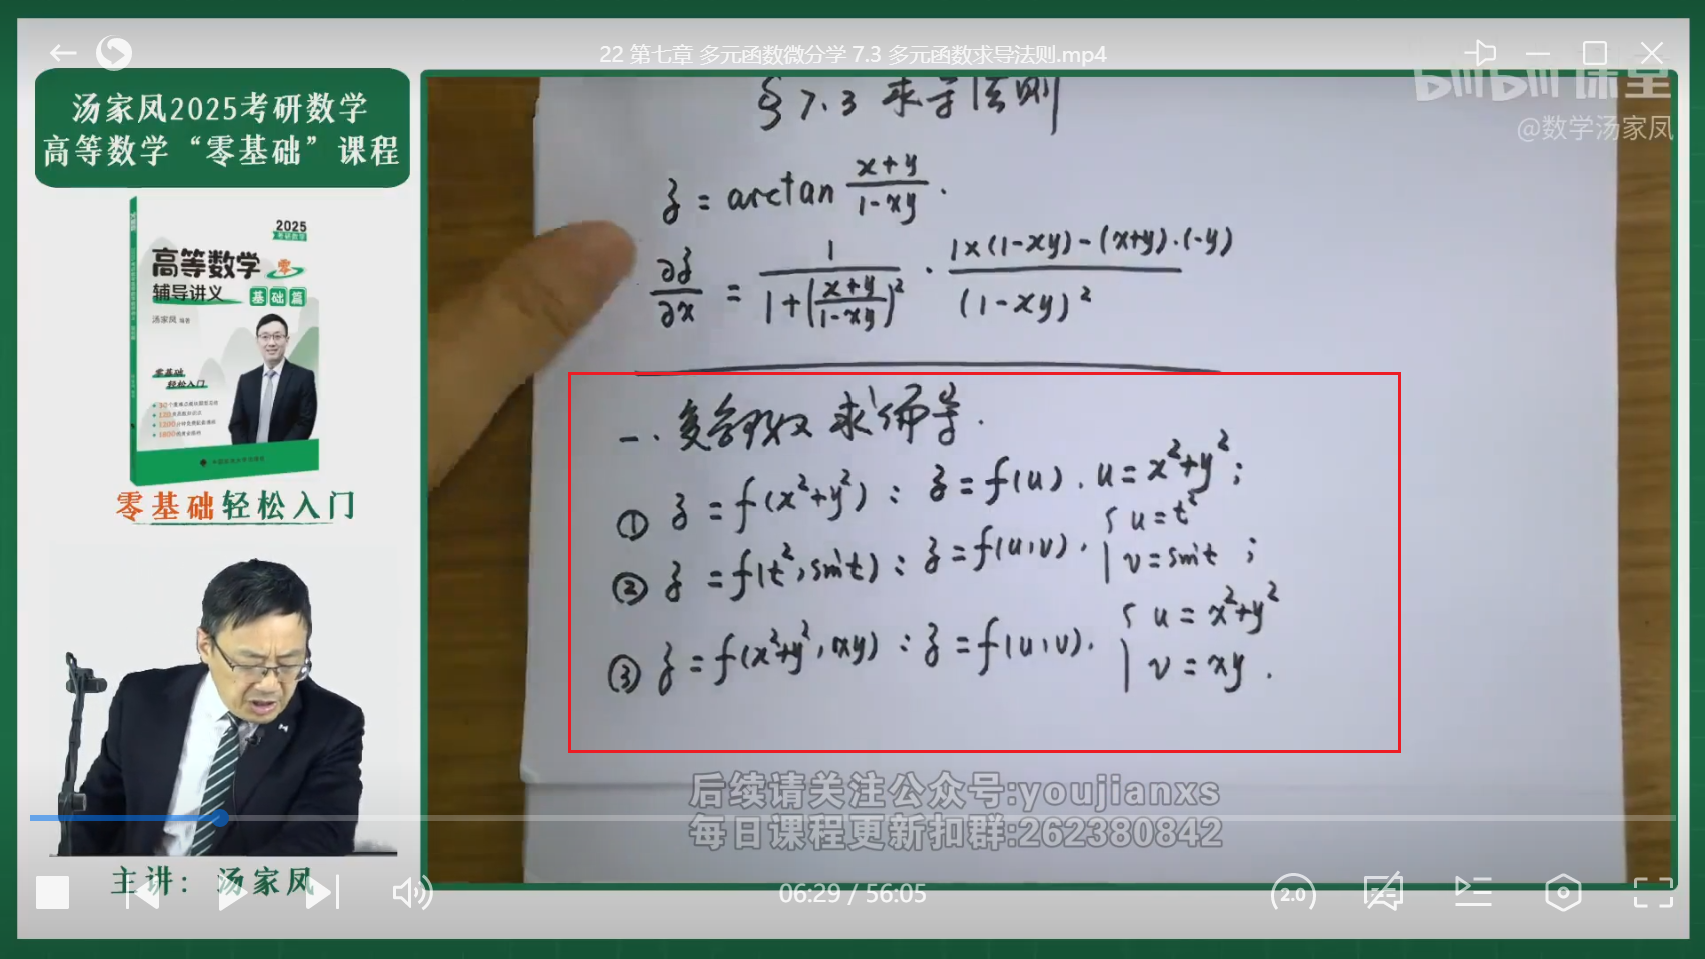 22 第七章 多元函数微分学 7.3 多元函数求导法则.mp4
汤家凤2025考研数学
高等数学“零基础”课程
bilibili 课堂
@数学汤家凤
2025
高等数学 零
辅导讲义 基础篇
汤家凤 编著
零基础
轻松入门
零基础轻松入门
主讲：汤家凤
§7.3 求导法则
z = arctan (x+y)/(1-xy).
∂z/∂x = 1/(1+((x+y)/(1-xy))²) · (1×(1-xy)-(x+y)·(-y))/(1-xy)²
一. 复合函数求偏导.
① z = f(x²+y²) : z = f(u). u = x²+y²;
② z = f(t², sint) : z = f(u,v). { u = t²
v = sint ;
③ z = f(x²+y², xy) : z = f(u,v). { u = x²+y²
v = xy .
后续请关注公众号:youjianxs
每日课程更新扣群:262380842
06:29 / 56:05
2.0